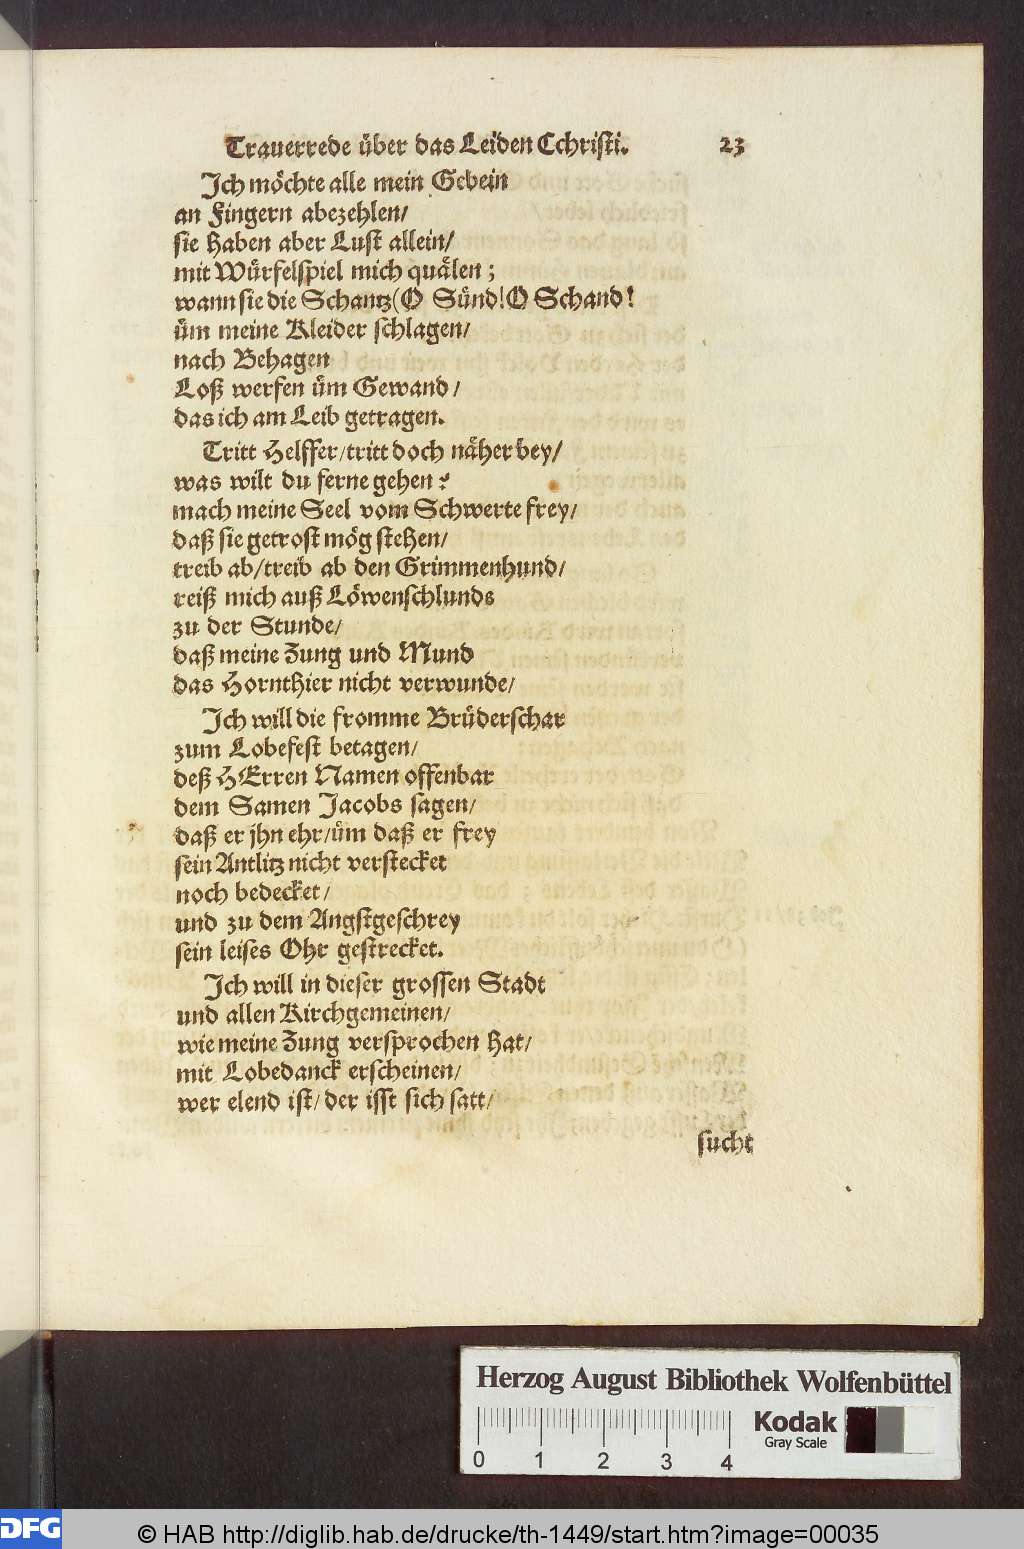 Trauerrede über das Leiden Cchristi. 23
Ich möchte alle mein Gebein
an Fingern abezehlen/
sie haben aber Lust allein/
mit Würfelspiel mich quälen;
wann sie die Schantz (O Sünd! O Schand!
üm meine Kleider schlagen/
nach Behagen
Loß werfen üm Gewand/
das ich am Leib getragen.
Tritt Helffer/tritt doch näher bey/
was wilt du ferne gehen?
mach meine Seel vom Schwerte frey/
daß sie getrost mög stehen/
treib ab/treib ab den Grimmenhund/
reiß mich auß Löwenschlunds
zu der Stunde/
daß meine Zung und Mund
das Hornthier nicht verwunde/
Ich will die fromme Brüderschar
zum Lobefest betagen/
deß HErren Namen offenbar
dem Samen Jacobs sagen/
daß er jhn ehr/üm daß er frey
sein Antlitz nicht verstecket
noch bedecket/
und zu dem Angstgeschrey
sein leises Ohr gestrecket.
Ich will in dieser grossen Stadt
und allen Kirchgemeinen/
wie meine Zung versprochen hat/
mit Lobedanck erscheinen/
wer elend ist/der isst sich satt/
sucht
Herzog August Bibliothek Wolfenbüttel
Kodak
Gray Scale
0 1 2 3 4
DFG
© HAB http://diglib.hab.de/drucke/th-1449/start.htm?image=00035